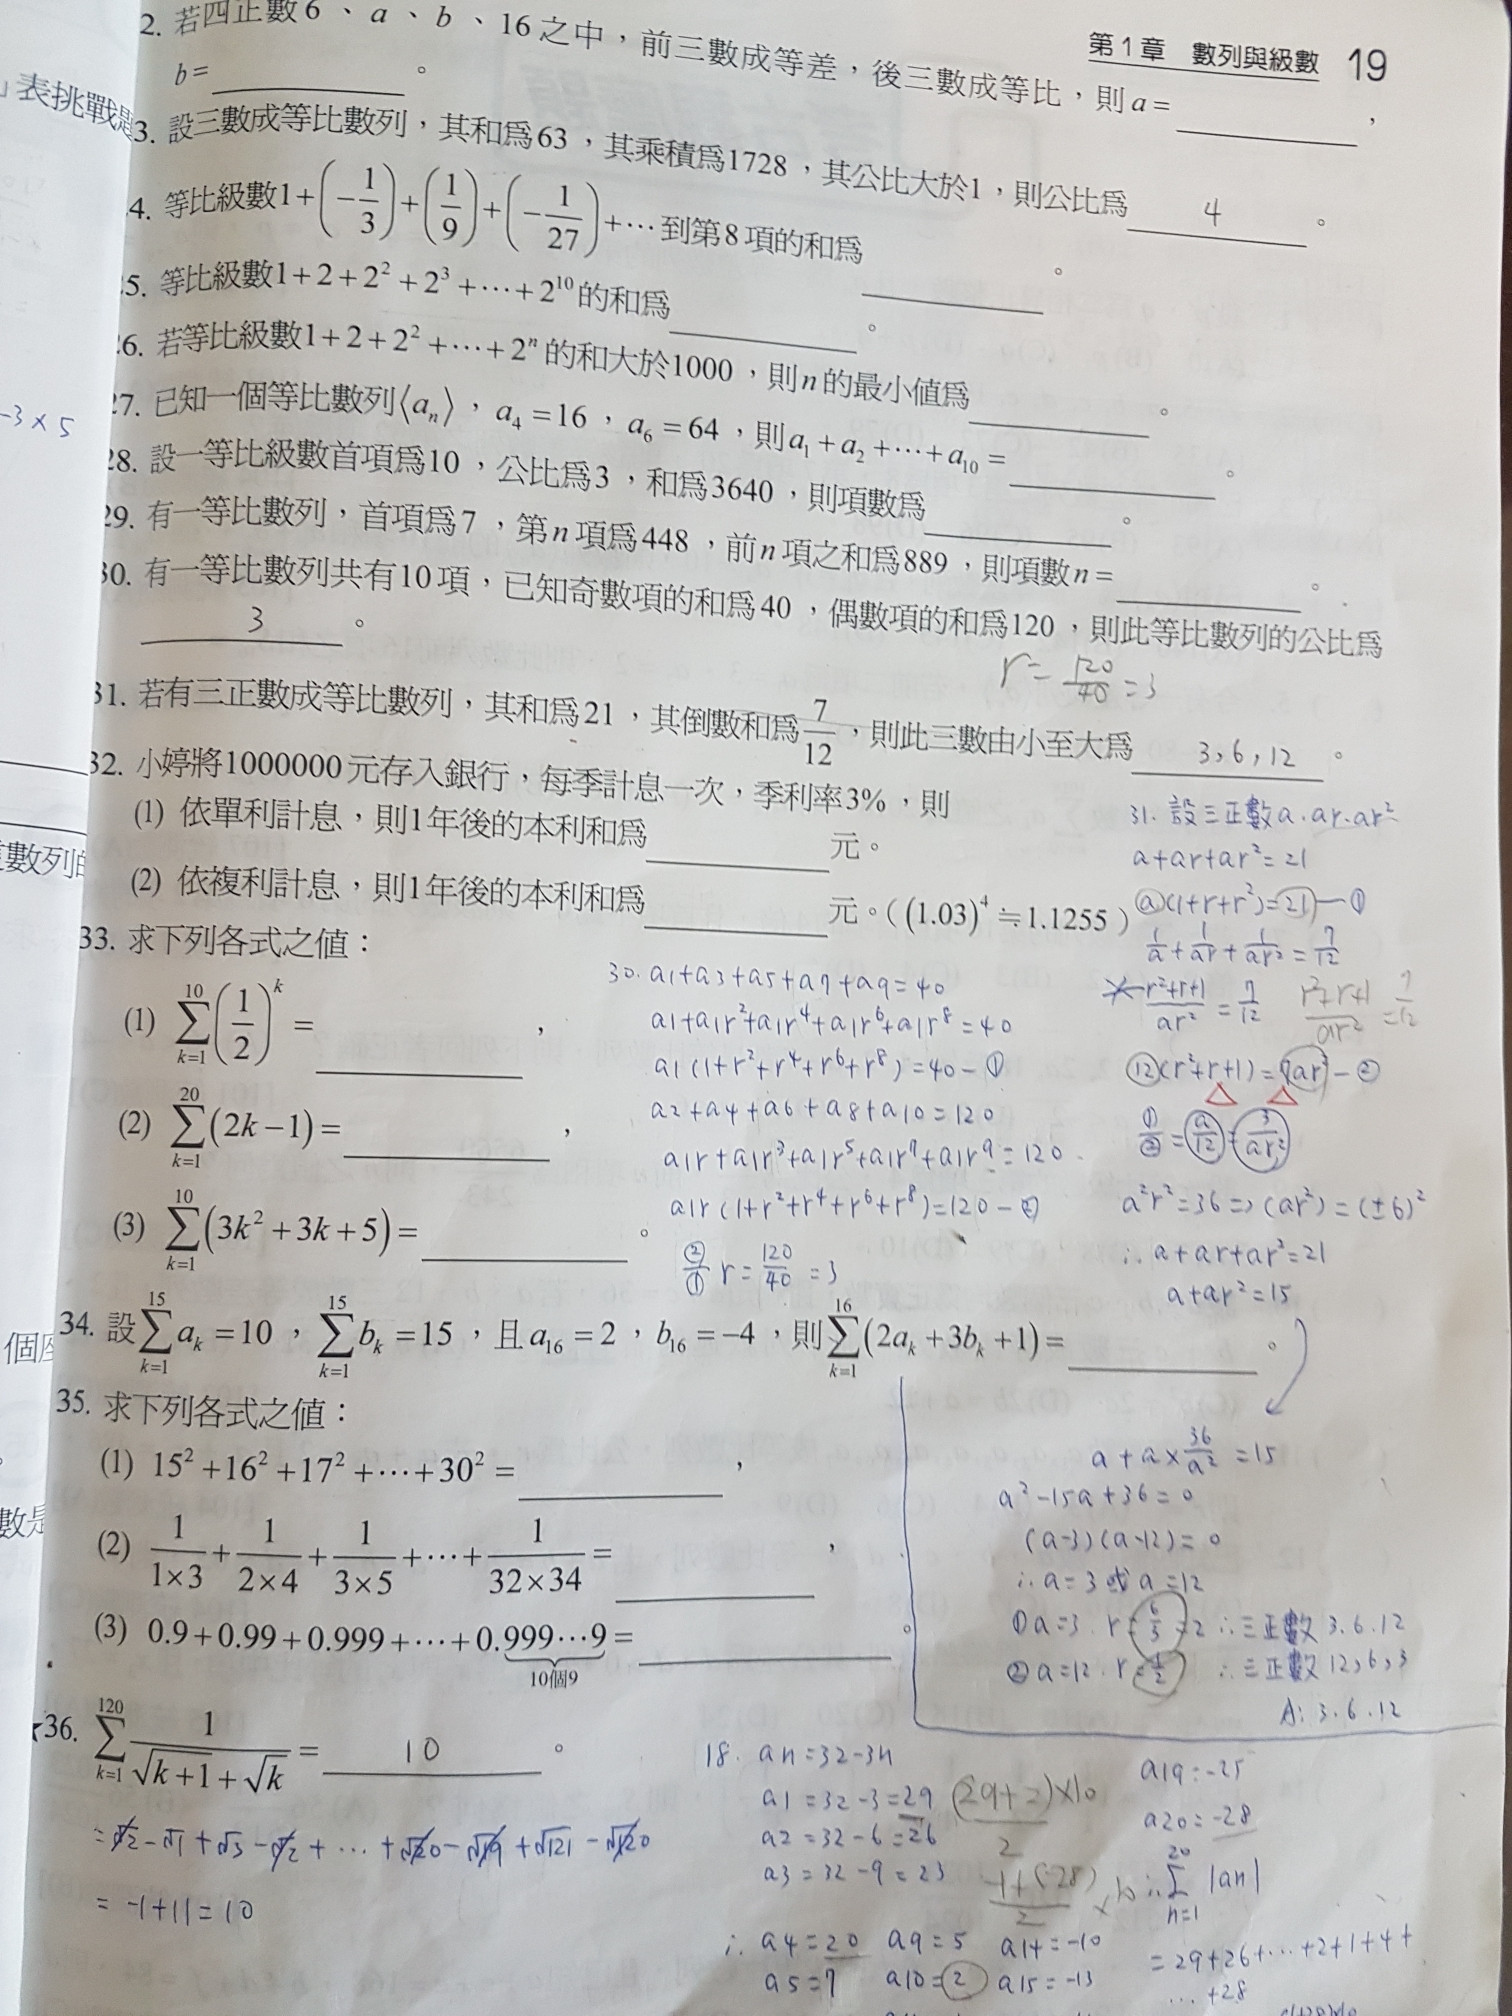 第1章 數列與級數 19
2. 若四正數6、a、b、16之中，前三數成等差，後三數成等比，則a=＿＿＿，
b=＿＿＿。
3. 設三數成等比數列，其和爲63，其乘積爲1728，其公比大於1，則公比爲 4 。
4. 等比級數1+(-1/3)+(1/9)+(-1/27)+⋯到第8項的和爲＿＿＿。
25. 等比級數1+2+2²+2³+⋯+2¹⁰的和爲＿＿＿。
26. 若等比級數1+2+2²+⋯+2ⁿ的和大於1000，則n的最小值爲＿＿＿。
27. 已知一個等比數列⟨aₙ⟩，a₄=16，a₆=64，則a₁+a₂+⋯+a₁₀=＿＿＿。
28. 設一等比級數首項爲10，公比爲3，和爲3640，則項數爲＿＿＿。
29. 有一等比數列，首項爲7，第n項爲448，前n項之和爲889，則項數n=＿＿＿。
30. 有一等比數列共有10項，已知奇數項的和爲40，偶數項的和爲120，則此等比數列的公比爲
3 。
r=120/40=3
31. 若有三正數成等比數列，其和爲21，其倒數和爲7/12，則此三數由小至大爲 3,6,12 。
32. 小婷將1000000元存入銀行，每季計息一次，季利率3%，則
(1) 依單利計息，則1年後的本利和爲＿＿＿元。
(2) 依複利計息，則1年後的本利和爲＿＿＿元。((1.03)⁴≒1.1255)
33. 求下列各式之值：
(1) ∑_{k=1}^{10}(1/2)^k=＿＿＿，
(2) ∑_{k=1}^{20}(2k-1)=＿＿＿，
(3) ∑_{k=1}^{10}(3k²+3k+5)=＿＿＿。
30. a1+a3+a5+a7+a9=40
a1+a1r²+a1r⁴+a1r⁶+a1r⁸=40
a1(1+r²+r⁴+r⁶+r⁸)=40-①
a2+a4+a6+a8+a10=120
a1r+a1r³+a1r⁵+a1r⁷+a1r⁹=120
a1r(1+r²+r⁴+r⁶+r⁸)=120-②
②/① r=120/40=3
31. 設三正數a.ar.ar²
a+ar+ar²=21
a(1+r+r²)=21-①
1/a+1/ar+1/ar²=7/12
r²+r+1/ar²=7/12 r²+r+1/ar²=7/12
12(r²+r+1)=7ar²-②
①/②=a/12=3/ar²
a²r²=36=>(ar²)=(±6)²
∴a+ar+ar²=21
a+ar²=15
34. 設∑_{k=1}^{15}aₖ=10，∑_{k=1}^{15}bₖ=15，且a₁₆=2，b₁₆=-4，則∑_{k=1}^{16}(2aₖ+3bₖ+1)=＿＿＿。
a+a×36/a²=15
a²-15a+36=0
(a-3)(a-12)=0
∴a=3或a=12
①a=3.r=6/3=2∴三正數3.6.12
②a=12.r=1/2 ∴三正數12,6,3
A:3.6.12
35. 求下列各式之值：
(1) 15²+16²+17²+⋯+30²=＿＿＿，
(2) 1/(1×3)+1/(2×4)+1/(3×5)+⋯+1/(32×34)=＿＿＿，
(3) 0.9+0.99+0.999+⋯+0.999⋯9=＿＿＿。
10個9
★36. ∑_{k=1}^{120}1/(√(k+1)+√k)= 10 。
=√2-√1+√3-√2+⋯+√120-√119+√121-√120
=-1+11=10
18. an=32-3n
a1=32-3=29 (29+2)×10/2
a2=32-6=26
a3=32-9=23
∴a4=20 a9=5 a14=-10
a5=17 a10=2 a15=-13
a19=-25
a20=-28
∴∑_{n=1}^{20}|an|
=29+26+⋯+2+1+4+
⋯+28
表挑戰題
-3×5
數列的